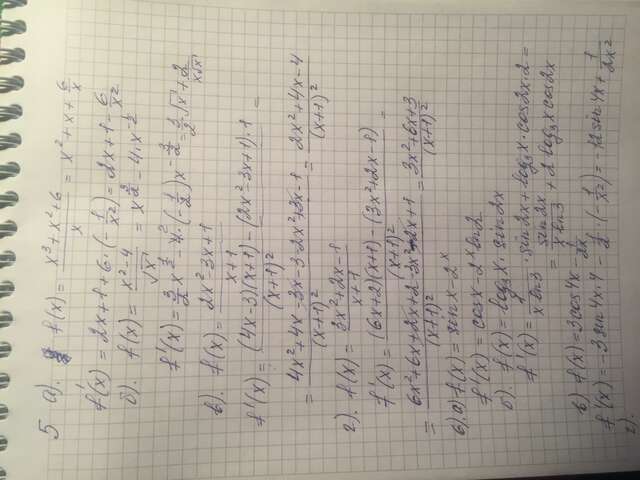 5 а). f(x) = (x³+x²+6)/x = x²+x+6/x
f'(x) = 2x+1+6·(-1/x²) = 2x+1-6/x²
б). f(x) = (x²-4)/√x = x^(3/2) - 4·x^(-1/2)
f'(x) = 3/2 x^(1/2) - 4·(-1/2)x^(-3/2) = 3/2·√x + 2/(x√x)
в). f(x) = (2x²-3x+1)/(x+1)
f'(x) = ((4x-3)(x+1)-(2x²-3x+1)·1)/(x+1)² =
= (4x²+4x-3x-3-2x²+3x-1)/(x+1)² = (2x²+4x-4)/(x+1)²
г). f(x) = (3x²+2x-1)/(x+1)
f'(x) = ((6x+2)(x+1)-(3x²+2x-1))/(x+1)² =
= (6x²+6x+2x+2-3x²-2x+1)/(x+1)² = (3x²+6x+3)/(x+1)²
6). а) f(x) = sin x - 2^x
f'(x) = cos x - 2^x ln 2
б). f(x) = log₃x · sin 2x
f'(x) = 1/(x ln 3) · sin 2x + log₃x · cos 2x · 2 =
= sin 2x/(x ln 3) + 2 log₃x cos 2x
в) f(x) = 3 cos 4x - 1/(2x)
f'(x) = -3 sin 4x · 4 - 1/2 · (-1/x²) = -12 sin 4x + 1/(2x²)
г).